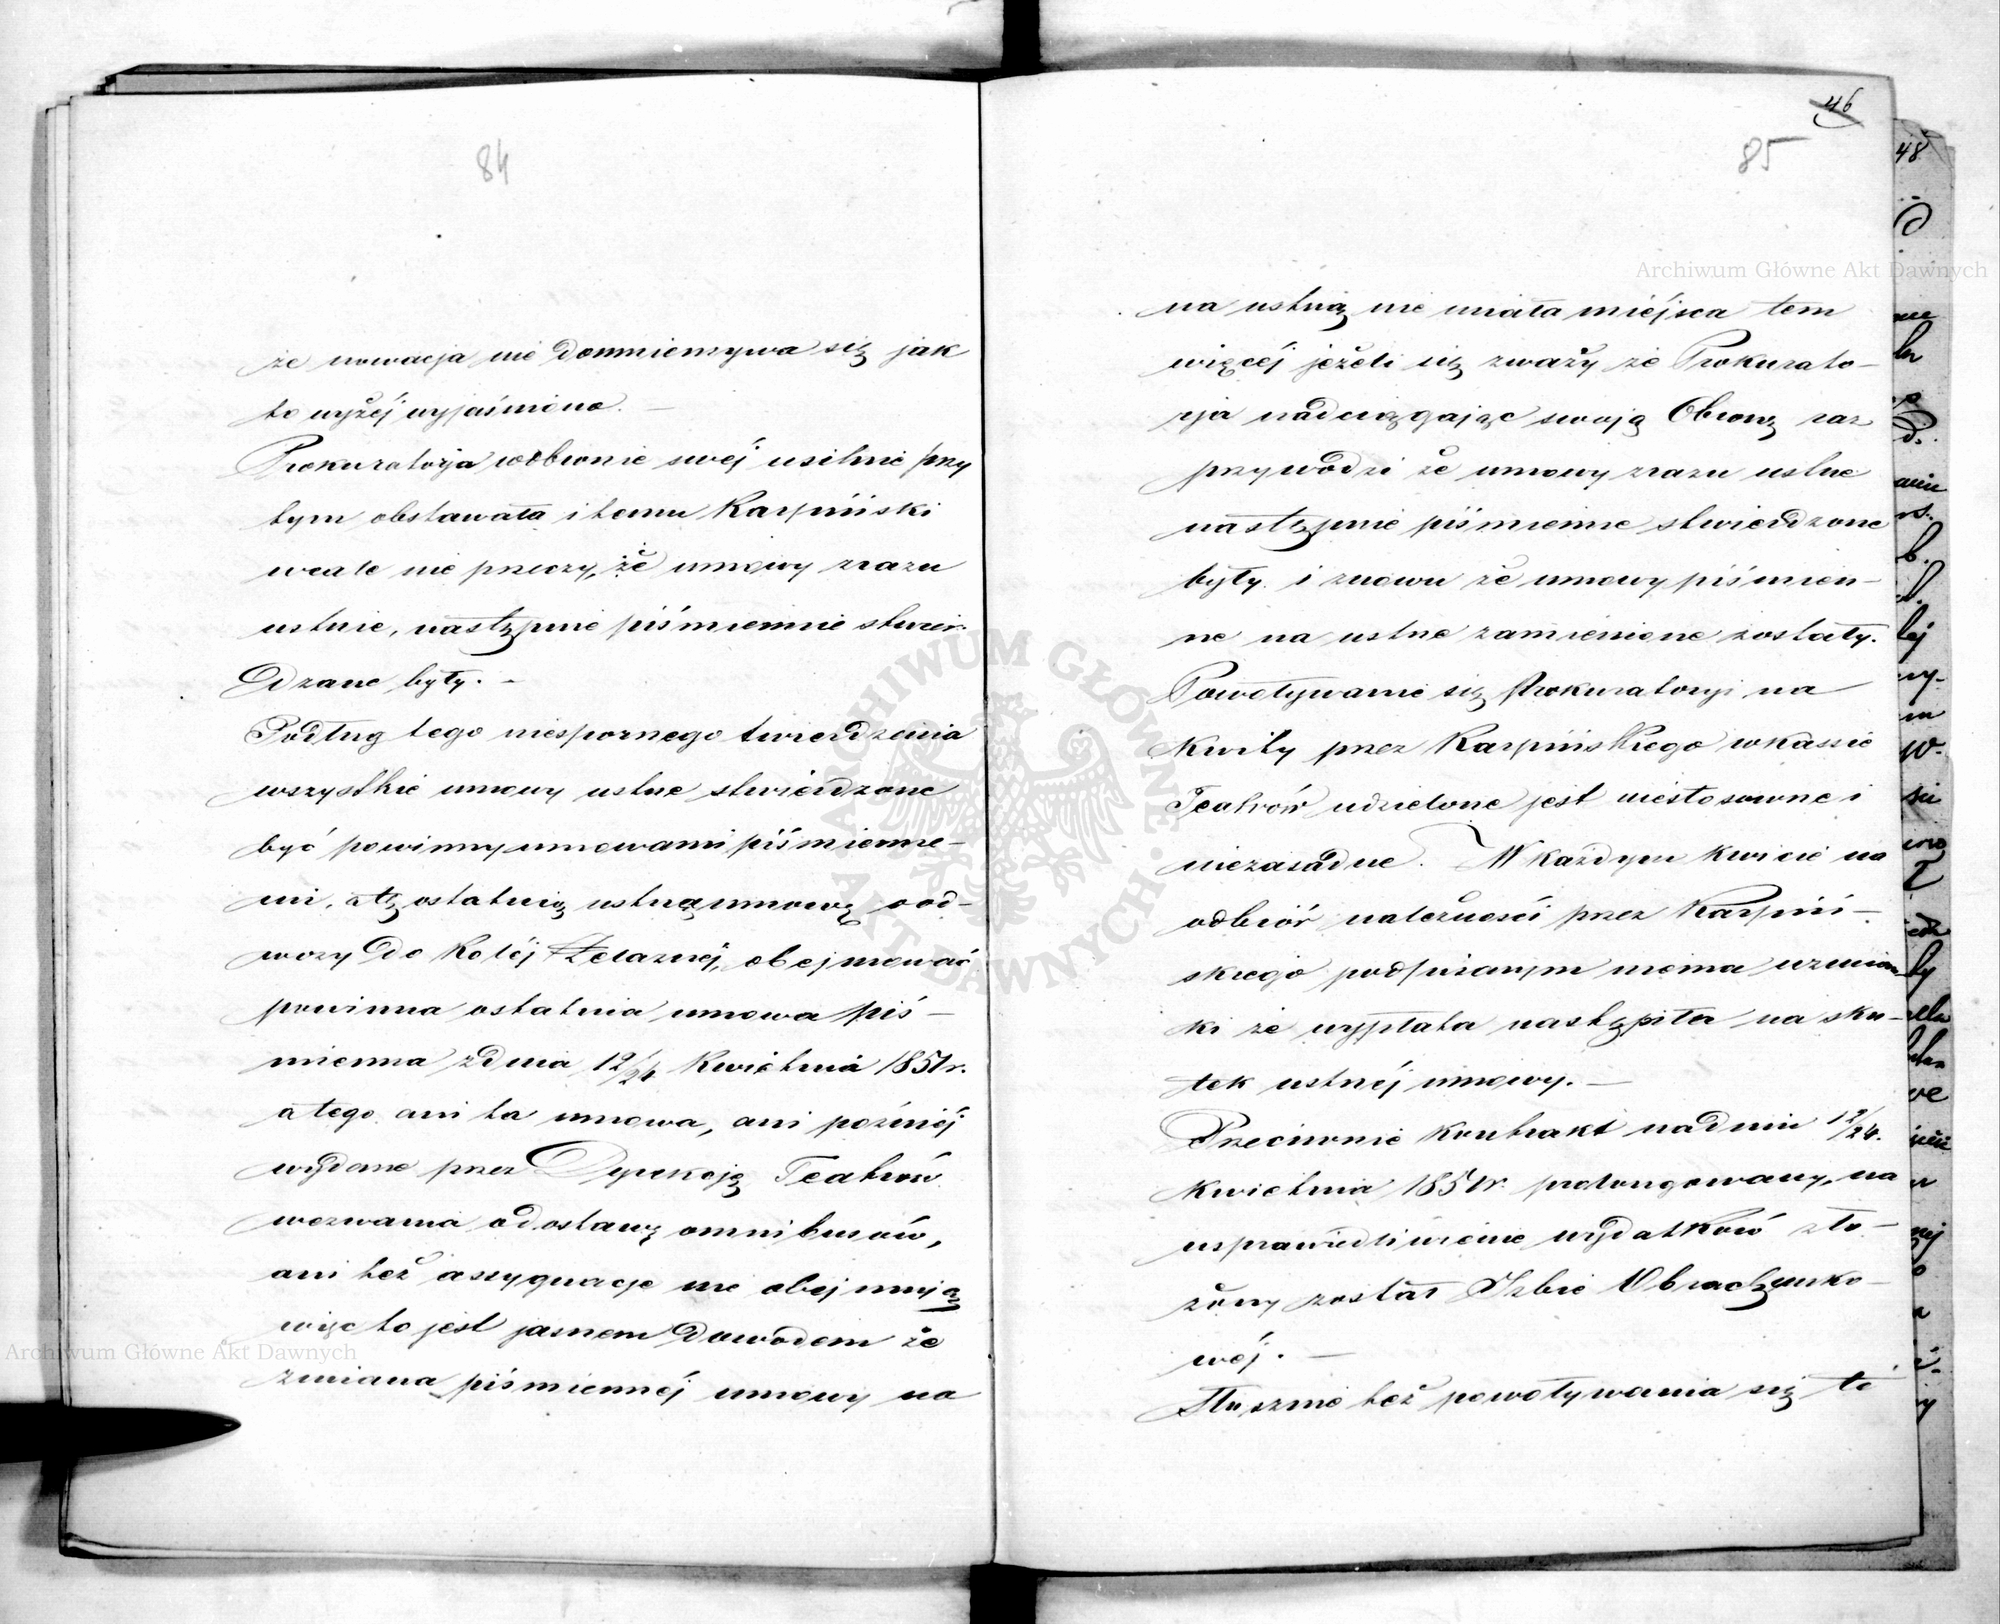 84
że nowacja nie domniemywa się jak
to wyżej wyjaśniono. —
Prokuratorja w obronie swéj usilnie przy
tym obstawała i temu Karpiński
wcale nie przeczy, że umowy zrazu
ustnie, następnie piśmiennie stwier-
dzane były. —
Podług tego niespornego twierdzenia
wszystkie umowy ustne stwierdzone
być powinny umowami piśmienne-
mi, a tę ostatnią ustną umowę o od-
wozy do Koléj Żelaznéj, obejmować
powinna ostatnia umowa piś-
mienna z dnia 12/24 Kwietnia 1851 r.
a tego ani ta umowa, ani poźniéj
wydane przez Dyrekcję Teatrów
wezwania o dostawę omnibusów,
ani też asygnacje nie obejmują
więc to jest jasnem dowodem że
zmiana piśmiennéj umowy na
46
85
na ustną nie miała miéjsca tem
więcéj jeżeli się zważy że Prokurato-
rja nadciągając swoją Obronę raz
przywodzi że umowy zrazu ustne
następnie piśmienne stwierdzone
były i znowu że umowy piśmien-
ne na ustne zamienione zostały.
Powoływanie się Prokuratoryi na
kwity przez Karpińskiego w kassie
Teatrów udzielone jest niestosowne i
niezasadne. W każdym kwicie na
odbiór należności przez Karpiń-
skiego podpisanym niema wzmian-
ki że wypłata nastąpiła na sku-
tek ustnéj umowy. —
Przeciwnie kontrakt nad dniu 12/24.
Kwietnia 1851 r. prolongowany, na
usprawiedliwienie wydatków zło-
żony został Izbie Obrachunko-
wéj. —
Słusznie też powoływania się te
48
Archiwum Główne Akt Dawnych
ARCHIWUM GŁÓWNE AKT DAWNYCH
Archiwum Główne Akt Dawnych